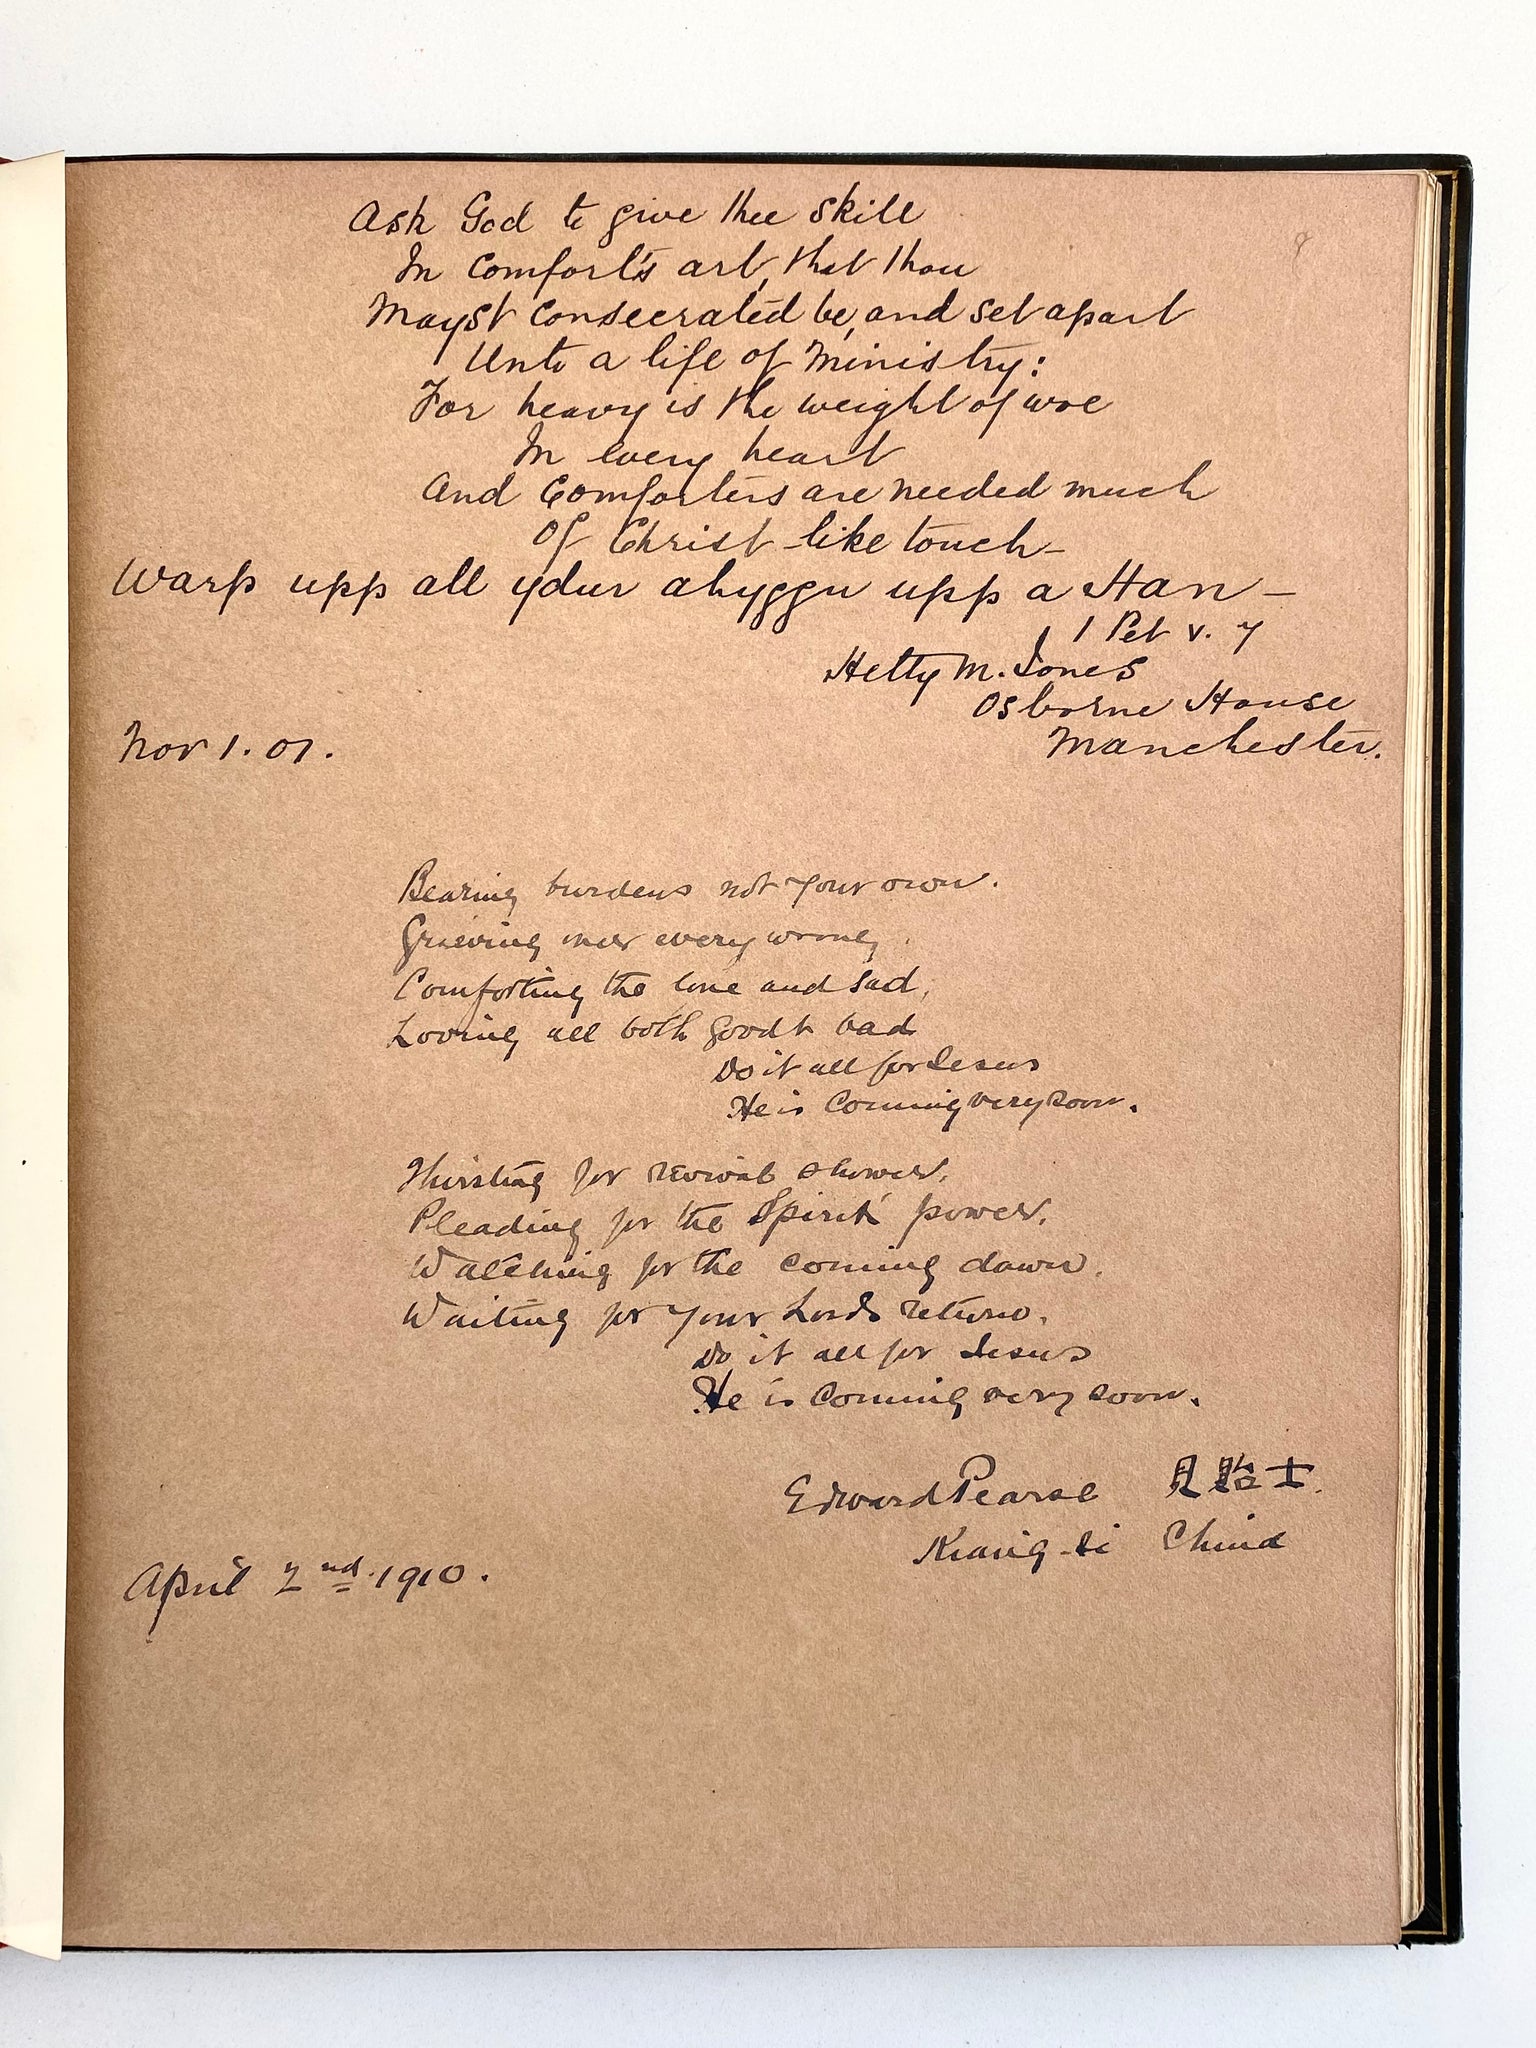 8
Ask God to give thee skill
In comfort's art, that thou
Mayst consecrated be, and set apart
Unto a life of ministry:
For heavy is the weight of woe
In every heart
And Comforters are needed much
Of Christ-like touch-
Warp upp all ydur ahyggu upp a Han-
1 Pet v. 7
Hetty M. Jones
Osborne House
Manchester.
Nov 1. 07.
Bearing burdens not your own.
Grieving over every wrong,
Comforting the lone and sad,
Loving all both good & bad
Do it all for Jesus
He is Coming very soon.
Thirsting for revival shower,
Pleading for the Spirit's power,
Watching for the coming dawn,
Waiting for your Lord's return,
Do it all for Jesus
He is Coming very soon.
Edward Pearse 貽士
Kiang-Si China
April 2nd. 1910.